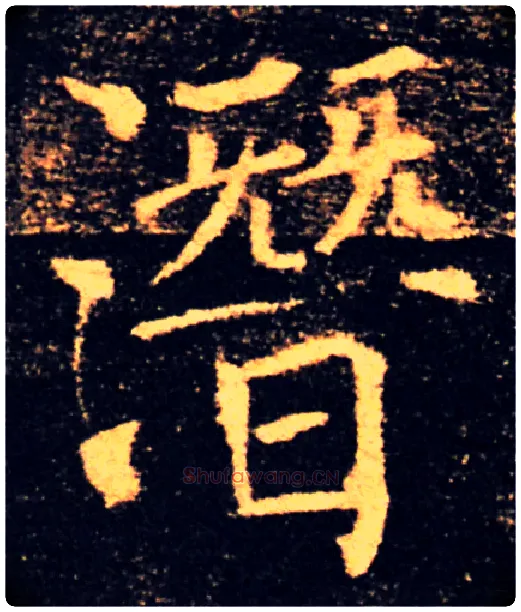 潛
Shufawang.CN